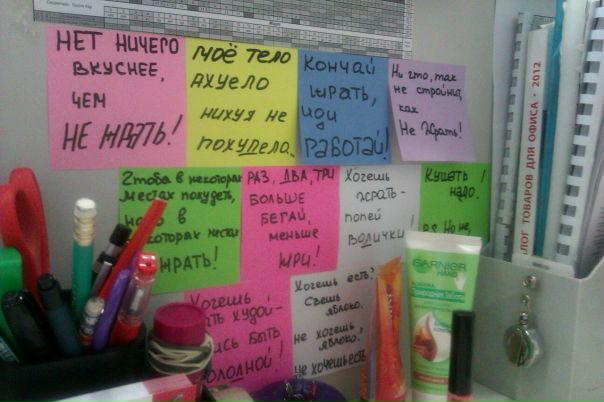 НЕТ НИЧЕГО
ВКУСНЕЕ,
ЧЕМ
НЕ ЖРАТЬ!
МОЁ ТЕЛО
АХУЕЛО
НИХУЯ НЕ
ПОХУДЕЛО.
КОНЧАЙ
ЖРАТЬ,
ИДИ
РАБОТАЙ!
Ни что, так
не стройнит,
как
Не Жрать!
Чтоба в некоторах
местах похудеть,
в
которах местах
ЖРАТЬ!
РАЗ, ДВА, ТРИ
БОЛЬШЕ
БЕГАЙ,
МЕНЬШЕ
ЖРИ!
Хочешь
ЖРАТЬ -
попей
ВОДИЧКИ!
Кушать
надо.
Но не
Хочешь
ТЬ ХУДОЙ -
ИСЬ БЫТЬ
ГОЛОДНОЙ!
Хочешь есть?
Съешь
яблоко.
не хочешь
яблоко,
не хочешь есть
ЛОГ ТОВАРОВ ДЛЯ ОФИСА • 2012
GARNIER
HAND